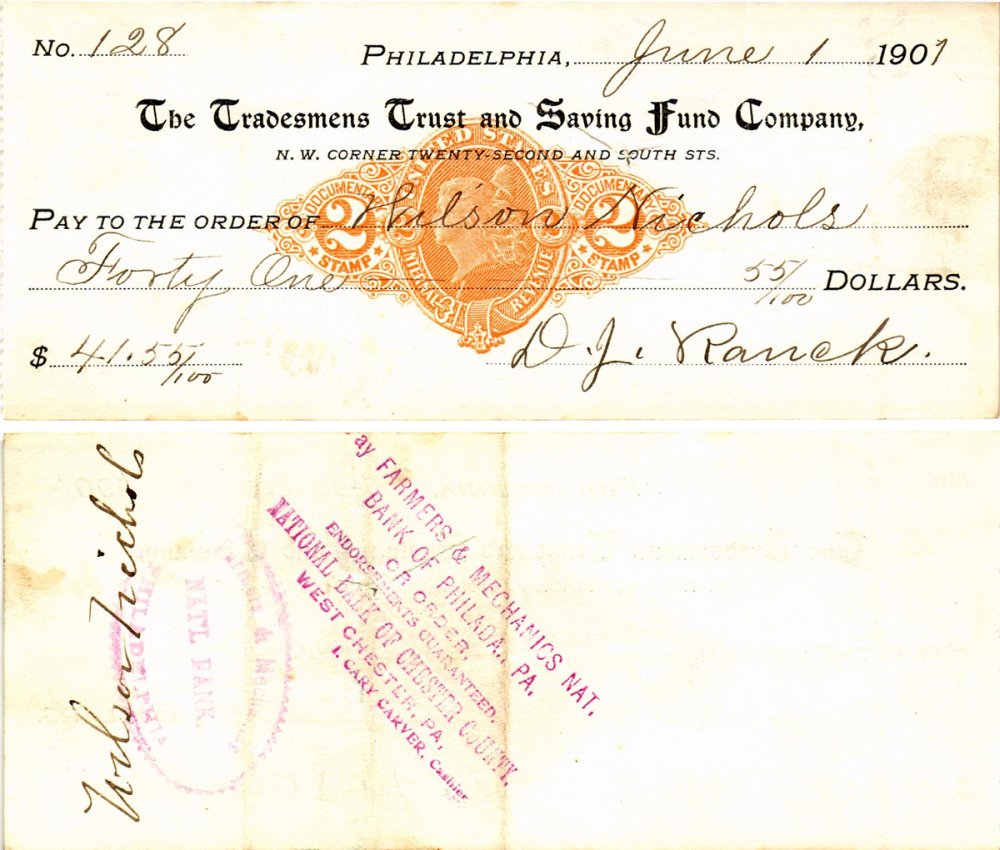 No. 128
PHILADELPHIA, June 1 1901
The Tradesmens Trust and Saving Fund Company,
N. W. CORNER TWENTY-SECOND AND SOUTH STS.
UNITED STATES
DOCUMENTA 2 STAMP
DOCUMENTA 2 STAMP
INTERNAL REVENUE
PAY TO THE ORDER OF Wilson Nichols
Forty One 55/100 DOLLARS.
$ 41.55/100
D. J. Ranck.
Wilson Nichols
& Mechanics
NAT'L BANK
PHILADELPHIA
ay FARMERS & MECHANICS NAT.
BANK OF PHILADA. PA.
OR ORDER,
ENDORSEMENTS GUARANTEED.
NATIONAL BANK OF CHESTER COUNTY,
WEST CHESTER, PA.
I. CARY CARVER, Cashier